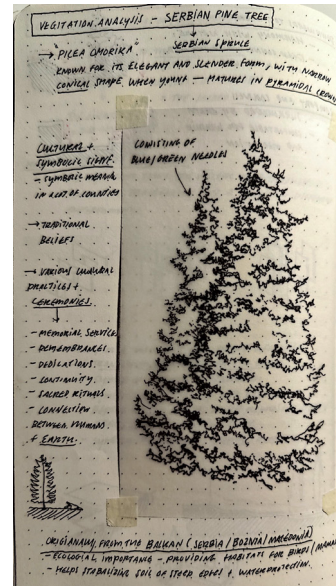 VEGITATION ANALYSIS - SERBIAN PINE TREE
SERBIAN SPRUCE
→ "PICEA OMORIKA"
KNOWN FOR ITS ELEGANT AND SLENDER FORM, WITH NARROW
CONICAL SHAPE WHEN YOUNG — MATURES IN PYRAMIDAL CROWN
CULTURAL +
SYMBOLIC SIGNF.
- SYMBOLIC MEANING
IN A LOT OF COUNTIES
→ TRADITIONAL
BELIEFS
→ VARIOUS CULTURAL
PRACTICES +
CEREMONIES
- MEMORIAL SERVICES
- REMEMBRANCES.
- DEDICATIONS.
- CONTINUITY.
- SACRED RITUALS
- CONNECTION
BETWEEN HUMANS
+ EARTH.
CONSISTING OF
BLUE/GREEN NEEDLES
ORIGINALY FROM THE BALKAN (SERBIA/BOZNIA/MACEDONIA)
- ECOLOGICAL IMPORTANC - PROVIDING HABITATS FOR BIRDS/
- HELPS STABILIZING SOIL OF STEEP EDGES + WATERPROTECTION.